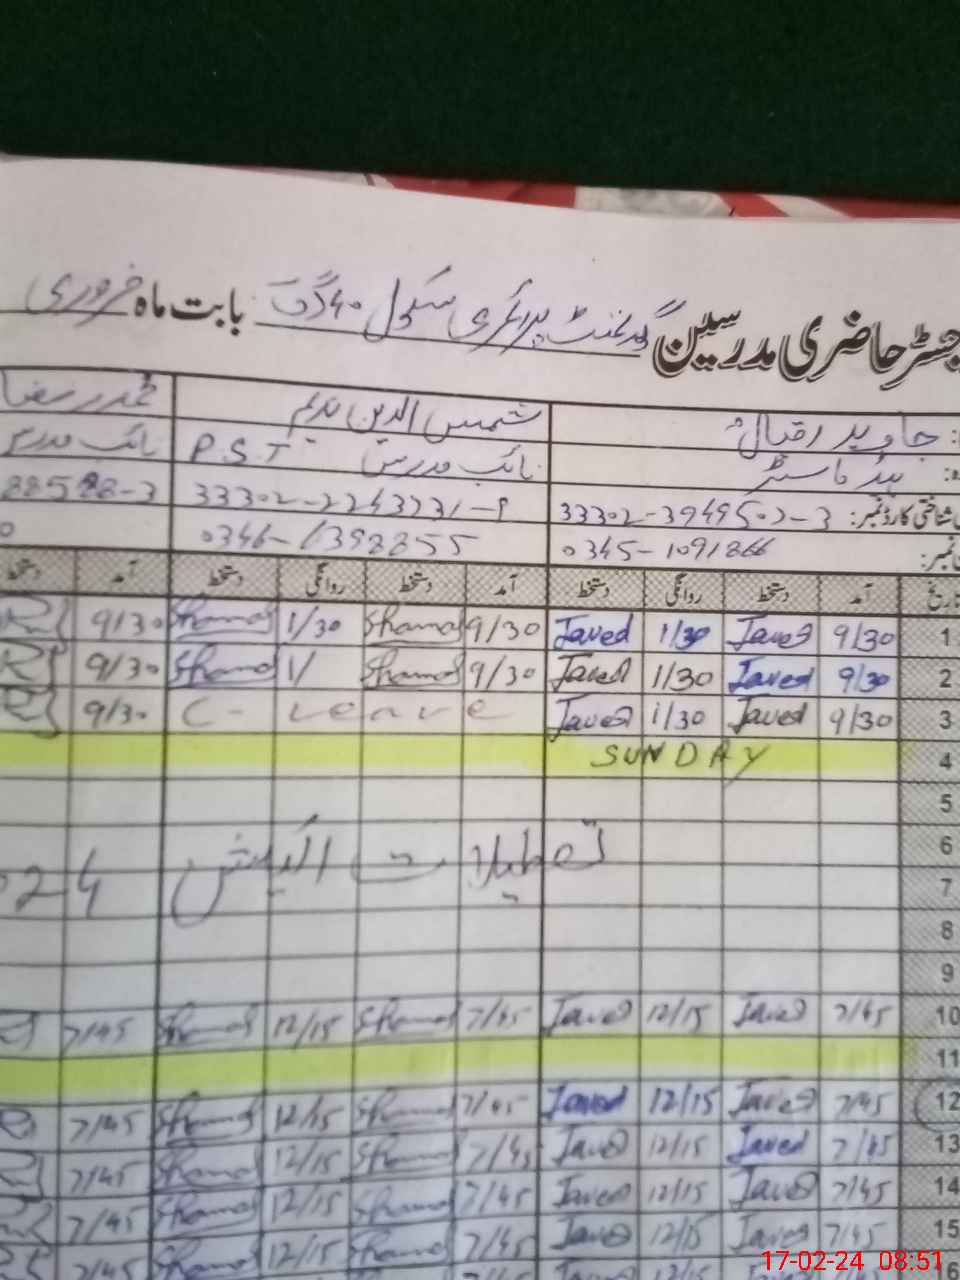 رجسٹر حاضری مدرسین گورنمنٹ پرائمری سکول 40 گ ب بابت ماہ فروری
جاوید اقبال شمس الدین ندیم محمد رضا
ہیڈ ماسٹر نائب مدرس P.S.T نائب مدرس
شناختی کارڈ نمبر: 33302-3949502-3 33302-2243231-9 88588-3
نمبر: 0345-1091866 0346-1392255 0
تاریخ آمد دستخط روانگی دستخط آمد دستخط روانگی دستخط آمد دستخط
1 9/30 Javed 1/30 Javed 9/30 Shams 1/30 Shams 9/30
2 9/30 Javed 1/30 Javed 9/30 Shams 1/ Shams 9/30
3 9/30 Javed 1/30 Javed C-Leave 9/30
4 SUNDAY
5
6 تعطیلات الیکشن
7 024
8
9
10 7/45 Javed 12/15 Javed 7/45 Shams 12/15 Shams 7/45
11
12 7/45 Javed 12/15 Javed 7/45 Shams 12/15 Shams 7/45
13 7/45 Javed 12/15 Javed 7/45 Shams 12/15 Shams 7/45
14 7/45 Javed 12/15 Javed 7/45 Shams 12/15 Shams 7/45
15 7/45 Javed 12/15 Javed 7/45 Shams 12/15 Shams 7/45
17-02-24 08:51